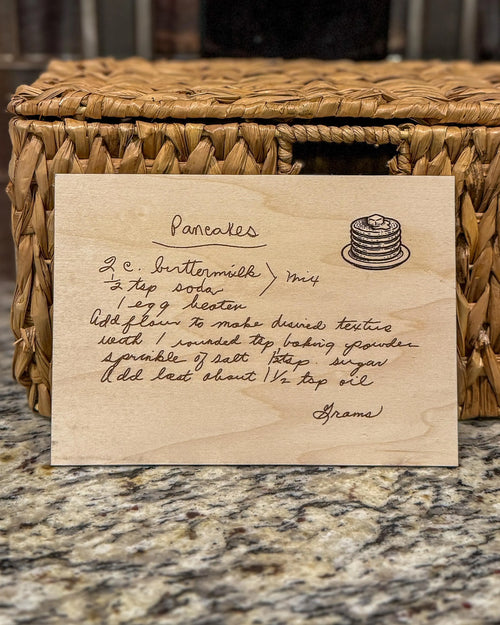 Pancakes
2 c. buttermilk > mix
1/2 tsp soda
1 egg beaten
Add flour to make desired texture
with 1 rounded tsp baking powder
sprinkle of salt 1/2 tsp. sugar
Add last about 1 1/2 tsp oil
Grams